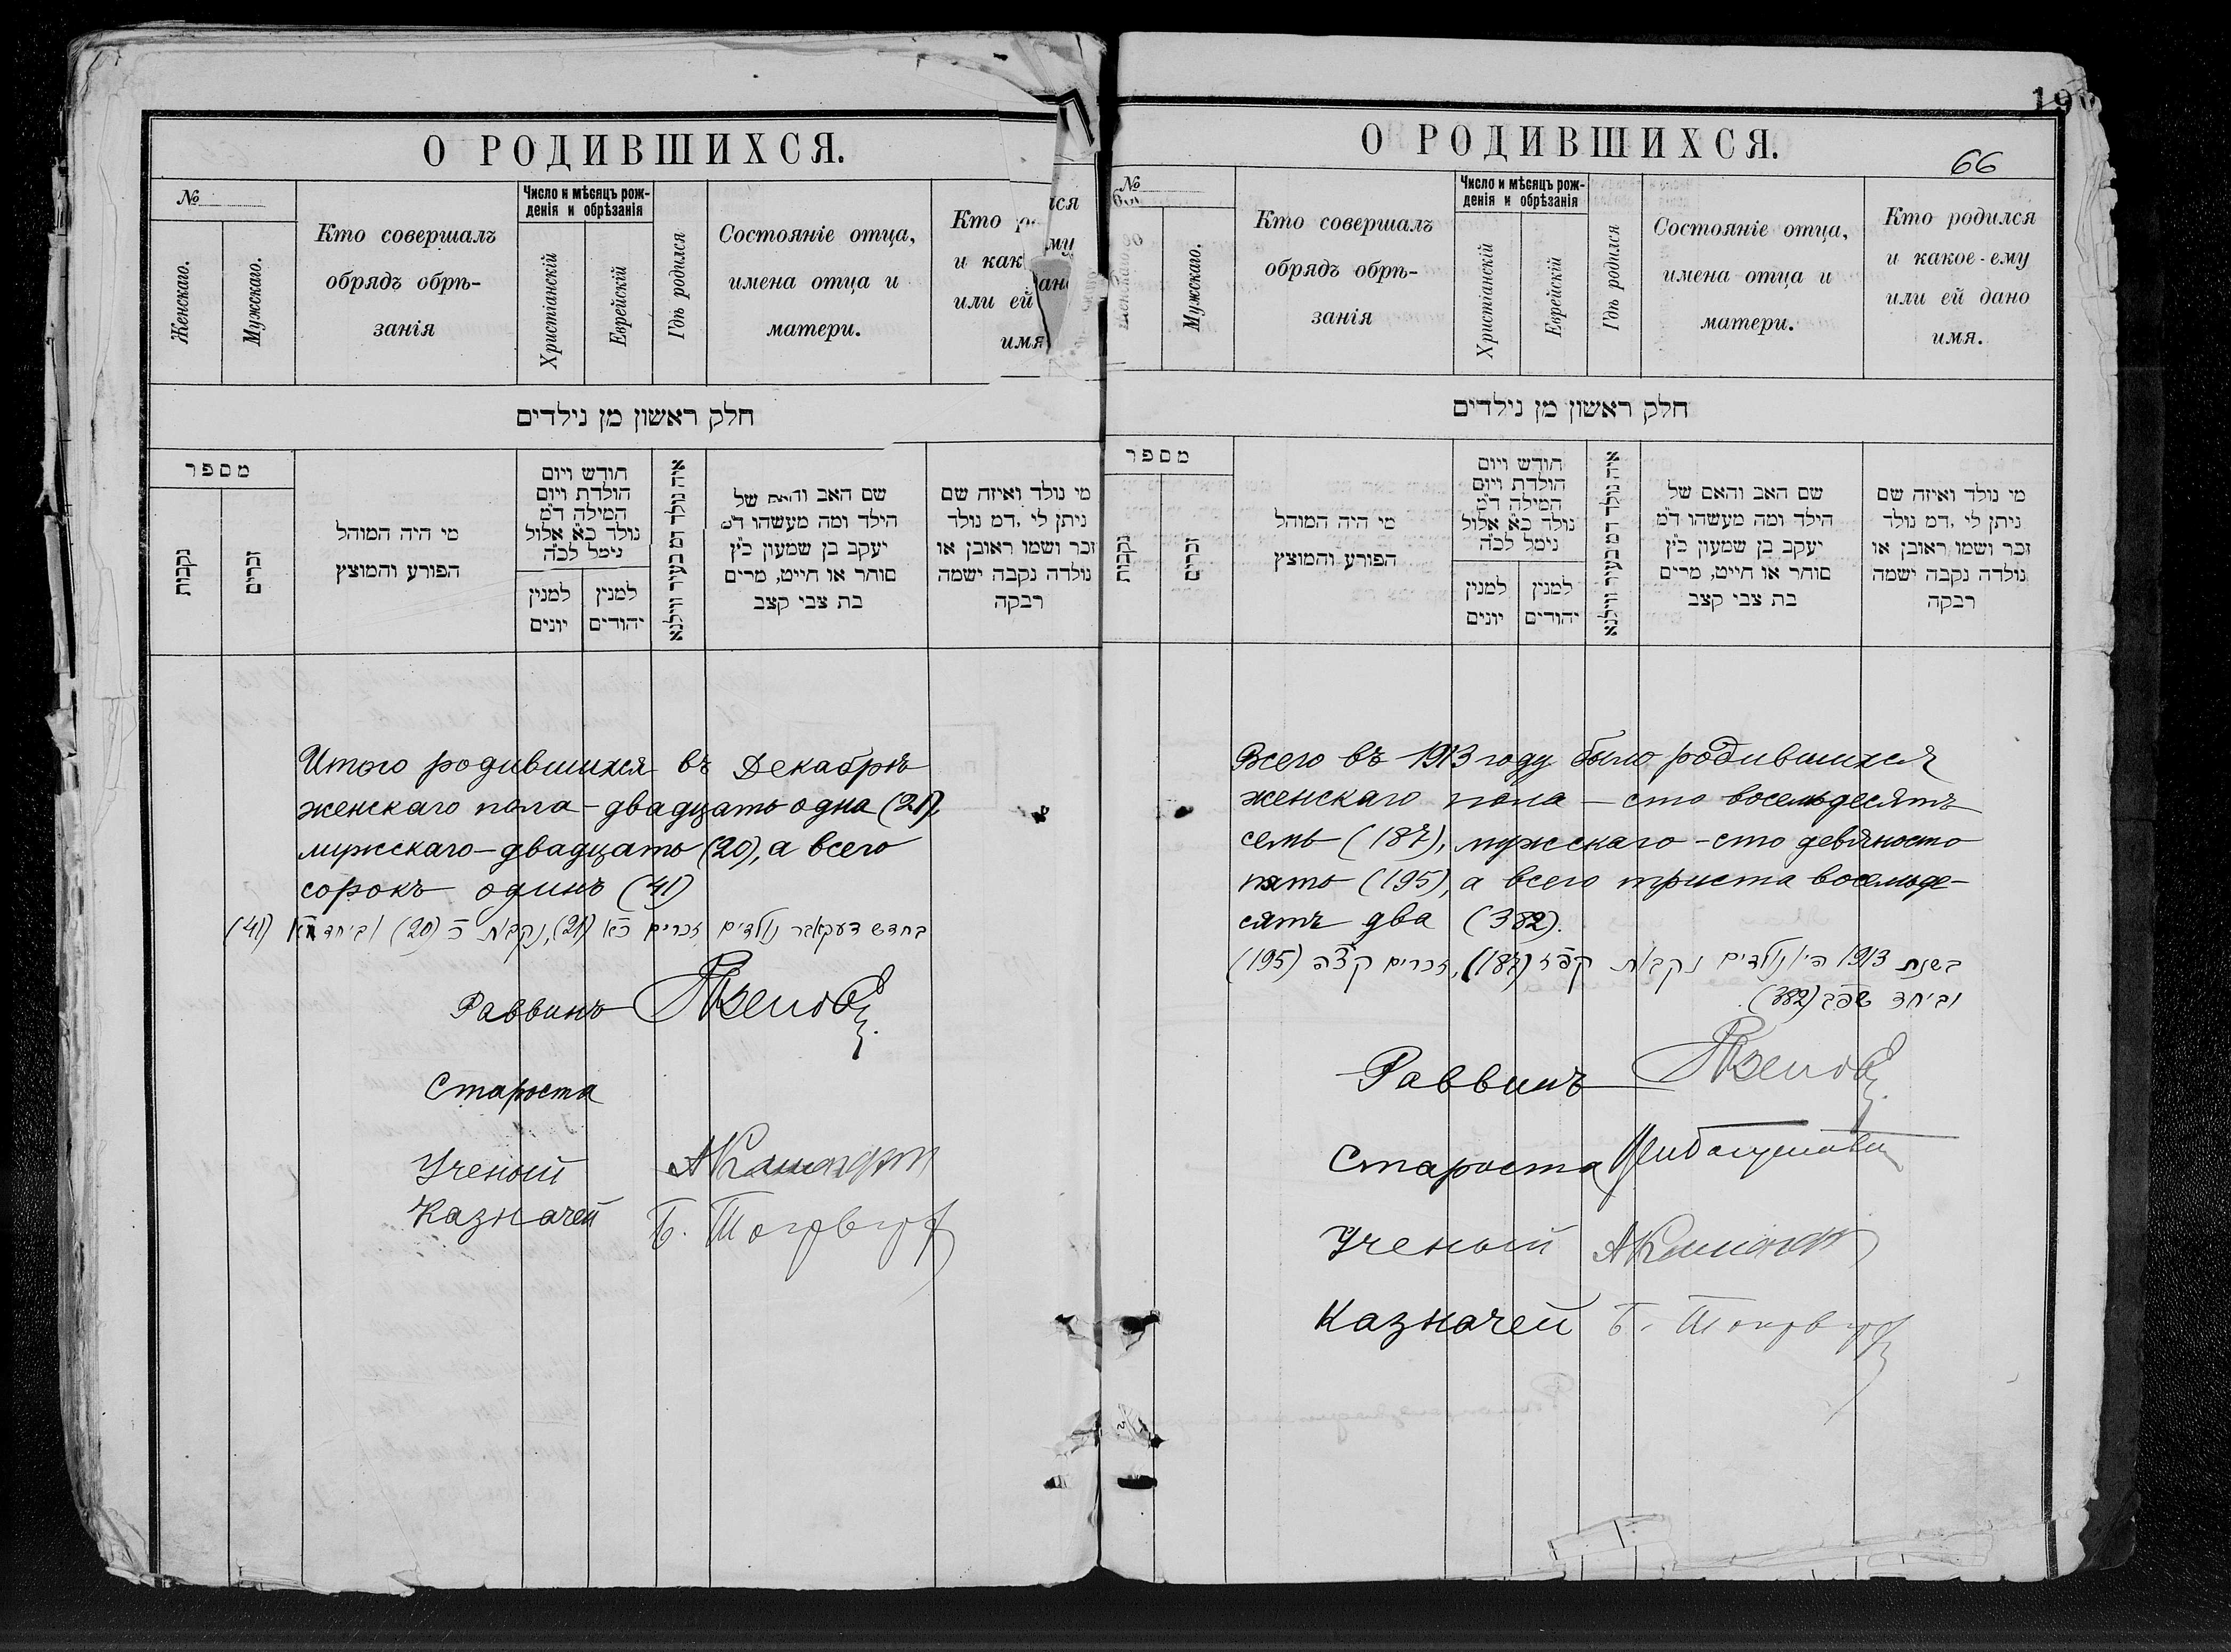 О РОДИВШИХСЯ.
№
Женскаго.
Мужскаго.
Кто совершалъ
обрядъ обрѣ-
занія
Число и мѣсяцъ рож-
денія и обрѣзанія
Христіанскій
Еврейскій
Гдѣ родился
Состояніе отца,
имена отца и
матери.
Кто
и как
или ей
имя
חלק ראשון מן נילדים
מספר
נקבות
זכרים
מי היה המוהל
הפורע והמוצץ
חודש ויום
הולדת ויום
המילה ד"מ
נולד כ"א אלול
נימל לכ"ה
למנין
יונים
למנין
יהודים
איה נולד דמ בעיר ווילנא
שם האב והאם של
הילד ומה מעשהו ד"מ
יעקב בן שמעון כ"ץ
סוחר או חייט, מרים
בת צבי קצב
מי נולד ואיזה שם
ניתן לי .דמ נולד
זכר ושמו ראובן או
נולדה נקבה ישמה
רבקה
Итого родившихся въ Декабрѣ
женскаго пола - двадцать одна (21),
мужскаго - двадцать (20), а всего
сорокъ одинъ (41)
בחדש דעקאבר נולדים זכרים כ"א (21), נקבות כ (20) וביחד מ"א (41)
Раввинъ
Староста
Ученый
Казначей
190
О РОДИВШИХСЯ.
66
№
Мужскаго.
Кто совершалъ
обрядъ обрѣ-
занія
Число и мѣсяцъ рож-
денія и обрѣзанія
Христіанскій
Еврейскій
Гдѣ родился
Состояніе отца,
имена отца и
матери.
Кто родился
и какое-ему
или ей дано
имя.
חלק ראשון מן נילדים
מספר
נקבות
זכרים
מי היה המוהל
הפורע והמוצץ
חודש ויום
הולדת ויום
המילה ד"מ
נולד כ"א אלול
נימל לכ"ה
למנין
יונים
למנין
יהודים
איה נולד דמ בעיר ווילנא
שם האב והאם של
הילד ומה מעשהו ד"מ
יעקב בן שמעון כ"ץ
סוחר או חייט, מרים
בת צבי קצב
מי נולד ואיזה שם
ניתן לי .דמ נולד
זכר ושמו ראובן או
נולדה נקבה ישמה
רבקה
Всего въ 1913 году было родившихся
женскаго пола - сто восемьдесятъ
семь (187), мужскаго - сто девяносто
пять (195), а всего триста восемьде-
сятъ два (382).
בשנת 1913 היו נולדים נקבות קפ"ז (187), זכרים קצ"ה (195)
וביחד שפ"ב (382).
Раввинъ
Староста
Ученый
Казначей